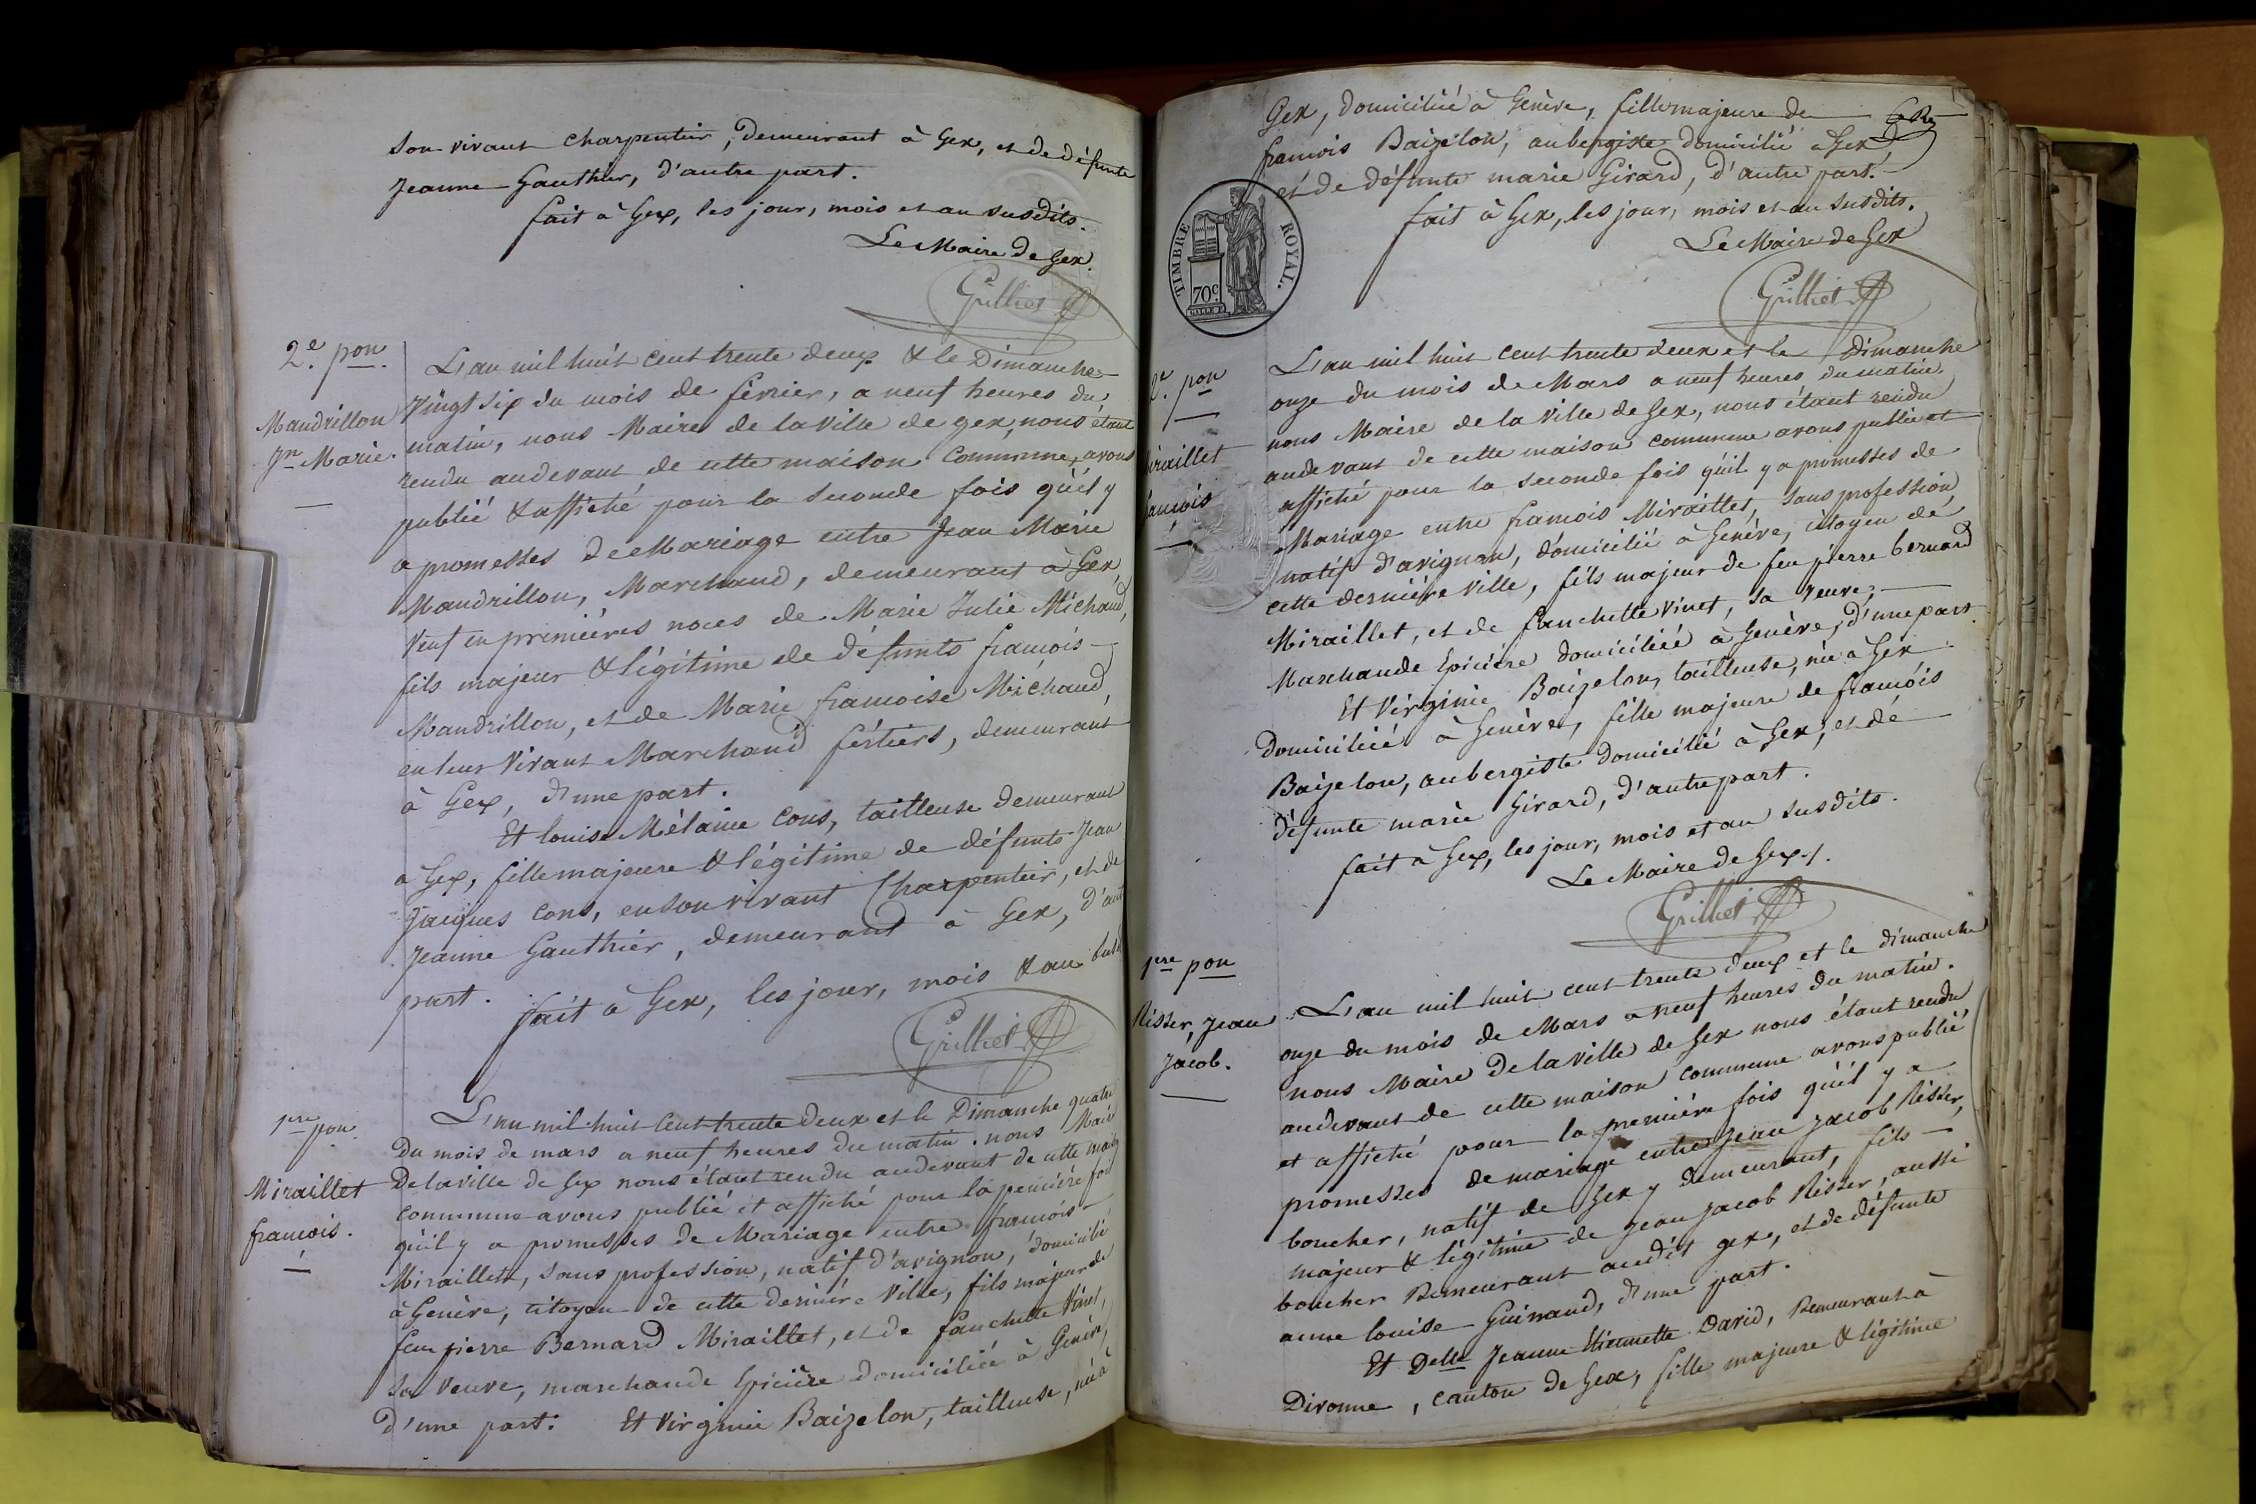 son vivant charpentier, demeurant à Gex, et de défunte
Jeanne Gauthier, d'autre part.
fait à Gex, les jour, mois et an susdits.
Le Maire de Gex.
Grilliet
2.e pon.
Mandrillon
Jn Marie.
L'an mil huit cent trente deux & le Dimanche
vingt six du mois de février, a neuf heures du
matin, nous Maire de la ville de gex, nous étant
rendu audevant de cette maison Commune, avons
publié & affiché pour la seconde fois qu'il y
a promesses de Mariage entre Jean Marie
Mandrillon, Marchand, demeurant à Gex,
veuf en premières noces de Marie Julie Michaud,
fils majeur & légitime de défunts françois
Mandrillon, et de Marie françoise Michaud,
en leur vivant Marchand fértiers, demeurant
à Gex, d'une part.
Et louise Mélanie Cons, tailleuse demeurant
à Gex, fille majeure & légitime de défunts Jean
Jacques Cons, en son vivant Charpentier, et de
Jeanne Gauthier, demeurant à Gex, d'aut
part.
fait à Gex, les jour, mois & an susd
Grilliet
1re pon.
Miraillet
françois.
L'an mil huit Cent trente deux et le Dimanche quatre
du mois de mars a neuf heures du matin. nous Maire
De la ville de Gex nous étant rendu audevant de cette maison
commune avons publié et affiché pour la pemiére fois
qu'il y a promesses de Mariage entre françois
Miraillet, sans profession, natif d'avignon, domicilié
à Genève, citoyen de cette derniére ville, fils majeur de
feu pierre Bernard Miraillet, et de fanchette Vinet,
sa veuve, marchande épicière domiciliée à Genève,
d'une part. Et Virginie Baizelon, tailleuse, née à
Gex, domiciliée à Genève, fille majeure de
françois Baizelon, aubergiste domicilié à Gex
et de défunte marie Girard, d'autre part.
fait à Gex, les jour, mois et an susdits.
Le Maire de Gex
Grilliet
TIMBRE ROYAL.
70c.
2e. pon
iraillet
ançois
L'an mil huit cent trente deux et le Dimanche
onze du mois de Mars a neuf heures du matin,
nous Maire de la ville de Gex, nous étant rendu
audevant de cette maison commune avons publié et
affiché pour la seconde fois qu'il y a promesses de
Mariage entre françois Miraillet, sans profession
natif d'avignon, domicilié à Genève, citoyen de
cette derniére ville, fils majeur de feu pierre bernard
Miraillet, et de fanchette Vinet, sa veuve,
Marchande épicière domiciliée à Genève, d'une part.
Et Virginie Baizelon, tailleuse, née à Gex
domiciliée à Genève, fille majeure de françois
Baizelon, aubergiste domicilié à Gex, et de
défunte marie Girard, d'autre part.
fait à Gex, les jour, mois et an susdits.
Le Maire de Gex.
Grilliet
1ere pon
Risser, Jean
Jacob.
L'an mil huit cent trente deux et le dimanche
onze du mois de Mars a neuf heures du matin.
nous Maire De la ville de Gex nous étant rendu
audevant de cette maison commune avons publié
et affiché pour la première fois qu'il y a
promesses de mariage entre Jean Jacob Risser,
boucher, natif de Gex y demeurant, fils
majeur & légitime de Jean Jacob Risser, aussi
boucher Demeurant audit gex, et de défunte
anne louise Guinand, d'une part.
Et Delle Jeanne Etiennette David, Demeurant à
Divonne, canton de Gex, fille majeure & légitime